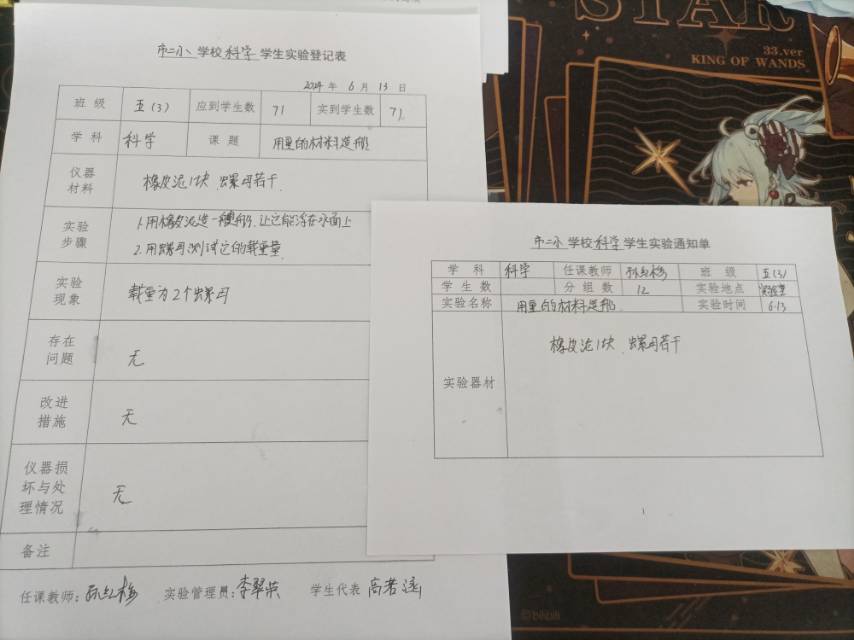 市二小 学校 科学 学生实验登记表
2024 年 6 月 13 日
班 级 五(3) 应到学生数 71 实到学生数 71
学 科 科学 课 题 用 的材料造船
仪器材料 橡皮泥1块 螺母若干
实验步骤 1.用橡皮泥造一种船,让它能浮在水面上
2.用螺母测试它的载重量
实验现象 载重为2个螺母
存在问题 无
改进措施 无
仪器损坏与处理情况 无
备注
任课教师: 红梅 实验管理员:李翠英 学生代表 高若涵
市二小 学校 科学 学生实验通知单
学 科 科学 任课教师 红梅 班 级 五(3)
学 生 数 分 组 数 12 实验地点 实验室
实验名称 用 的材料造船 实验时间 6.13
实验器材 橡皮泥1块 螺母若干
1
STAR
33.ver
KING OF WANDS
©bilibili